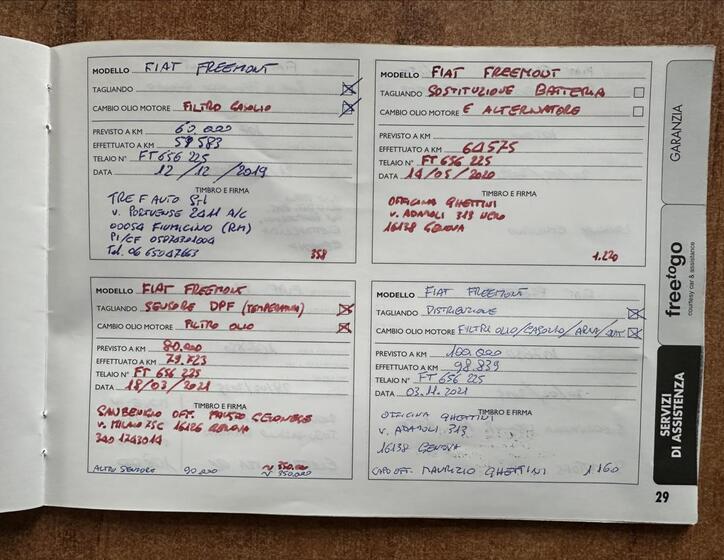 MODELLO FIAT FREEMONT
TAGLIANDO
CAMBIO OLIO MOTORE FILTRO GASOLIO
PREVISTO A KM 60.000
EFFETTUATO A KM 59583
TELAIO N° FT 656 225
DATA 12/12/2019
TIMBRO E FIRMA
TRE F AUTO S.r.l
V. PORTUENSE 2411 A/C
00054 FIUMICINO (RM)
Tel. 06 65047663
358
MODELLO FIAT FREEMONT
TAGLIANDO SOSTITUZIONE BATTERIA
CAMBIO OLIO MOTORE E ALTERNATORE
PREVISTO A KM
EFFETTUATO A KM 64575
TELAIO N° FT 656 225
DATA 14/05/2020
TIMBRO E FIRMA
OFFICINA GHETTINI
V. ADAMOLI 313 NERO
16138 GENOVA
1.220
MODELLO FIAT FREEMONT
TAGLIANDO SENSORE DPF (TEMPERATURA)
CAMBIO OLIO MOTORE FILTRO OLIO
PREVISTO A KM 80.000
EFFETTUATO A KM 79.723
TELAIO N° FT 656 225
DATA 18/03/2021
TIMBRO E FIRMA
OFF. FAUSTO
V. MILANO 75C 16126 GENOVA
340 1243014
ALTRO SENSORE 90.000
MODELLO FIAT FREEMONT
TAGLIANDO DISTRIBUZIONE
CAMBIO OLIO MOTORE FILTRI OLIO/GASOLIO/ARIA/
PREVISTO A KM 100.000
EFFETTUATO A KM 98.839
TELAIO N° FT 656 225
DATA 03.11.2021
TIMBRO E FIRMA
OFFICINA GHETTINI
V. ADAMOLI 313
16138 GENOVA
CAPO OFF. MAURIZIO GHETTINI 1160
GARANZIA
freetogo
courtesy car & assistance
SERVIZI
DI ASSISTENZA
29